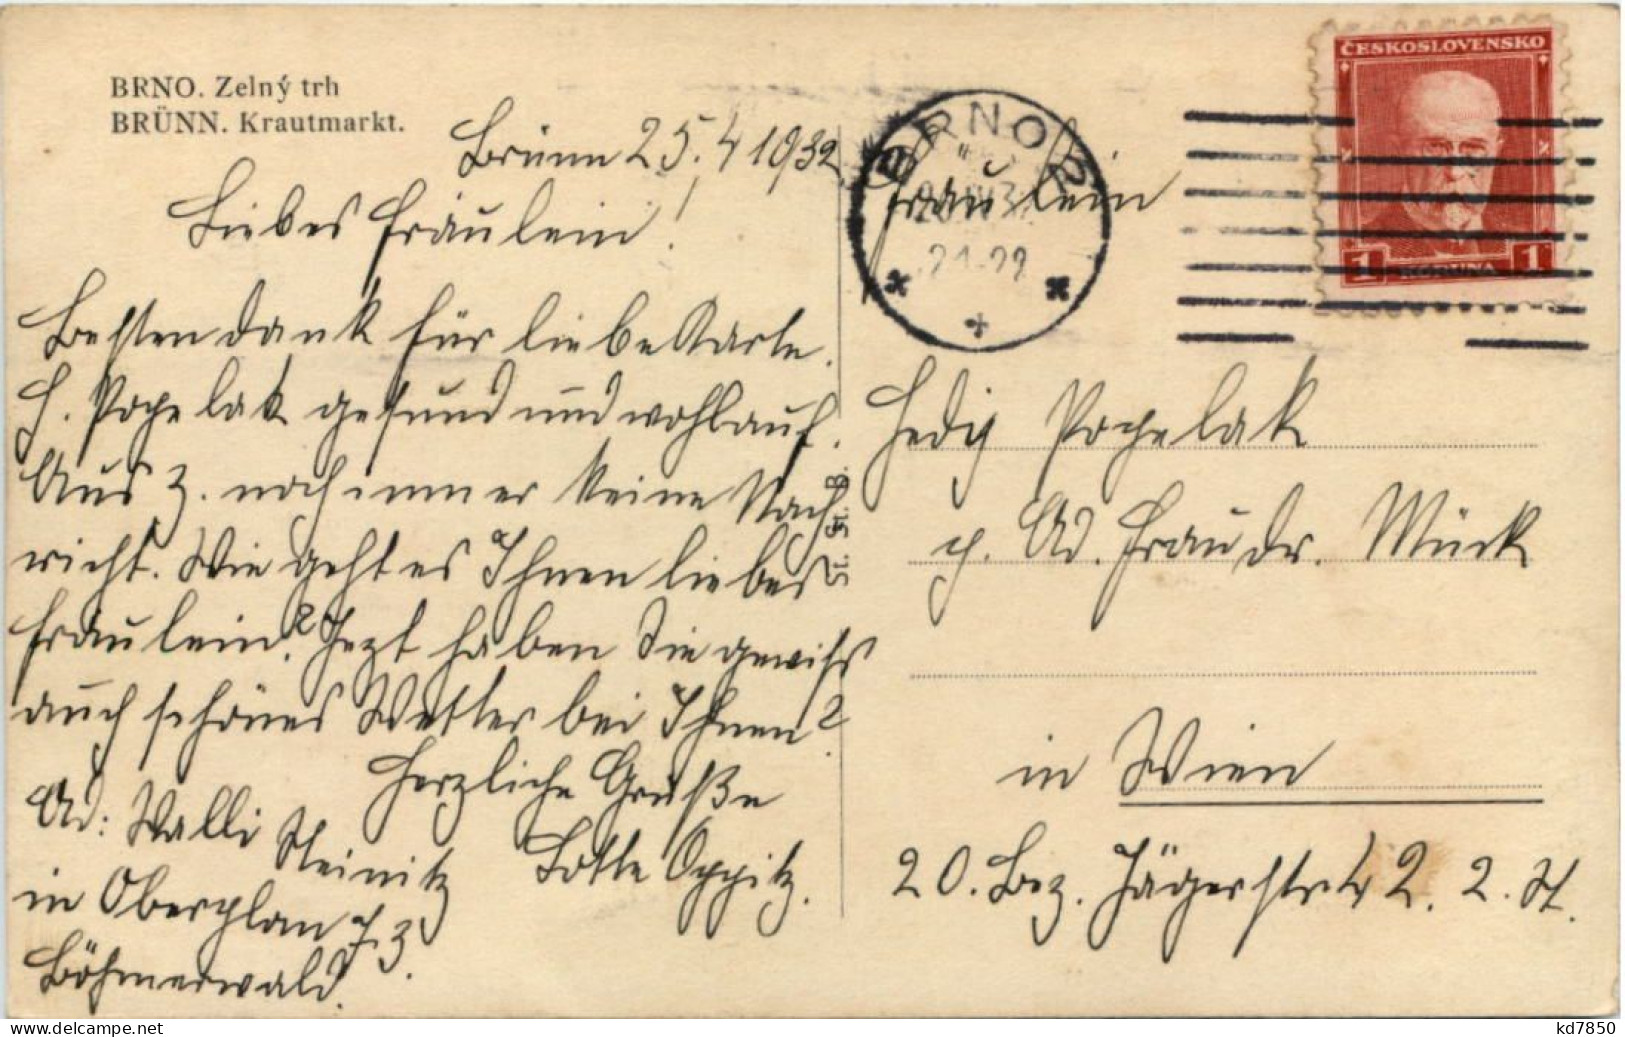 BRNO. Zelný trh
BRÜNN. Krautmarkt.
Brünn 25. 4 1932
Liebes Fräulein!
Besten Dank für liebe Karte.
H. Pogelak gesund und wohlauf.
Aus Z. noch immer keine Nach
richt. Wie geht es Ihnen liebes
Fräulein? Jezt haben Sie gewiss
auch schönes Wetter bei Ihnen?
Herzliche Grüße
Lotte Oppitz.
Ad: Walli Steinitz
in Oberplan
Böhmerwald.
St. St. B.
BRNO 2
21-22
ČESKOSLOVENSKO
1 KORUNA 1
Fräulein
Hedy Pogelak
p. Ad. Frau Dr. Mück
in Wien
20. Bez. Jägerstr 42. 2. St.
Delcampe.net
kd7850